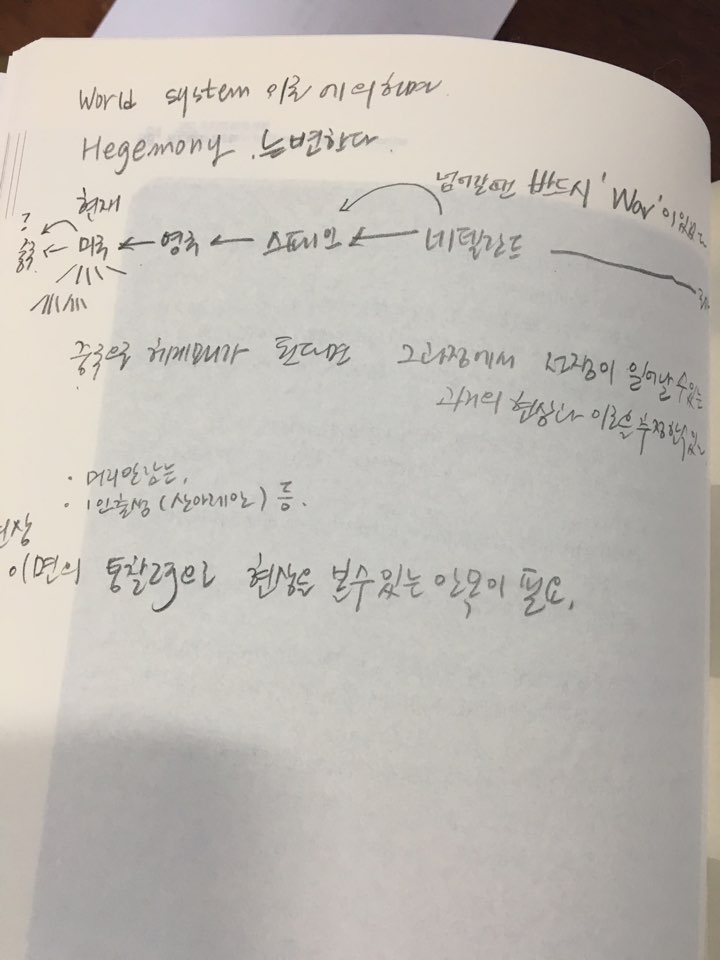 World system 이론에 의하면
Hegemony 는 변한다.
넘어갈땐 반드시 'War'이 있었다
현재
?
중국 ← 미국 ← 영국 ← 스페인 ← 네델란드
중국으로 헤게모니가 된다면 그 과정에서 전쟁이 일어날 수 있는
과거의 현상과 이론을 부정할 수 있
· 머리만 남는,
· 1인출생 (산아제한) 등.
현상
이면의 통찰력으로 현상을 볼 수 있는 안목이 필요.